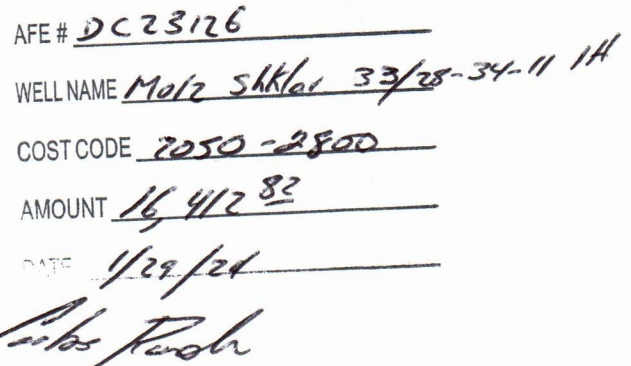 AFE # DC23126
WELL NAME Molz Shklar 33/28-34-11 1H
COST CODE 2050-2800
AMOUNT 16,412 82
DATE 1/29/24